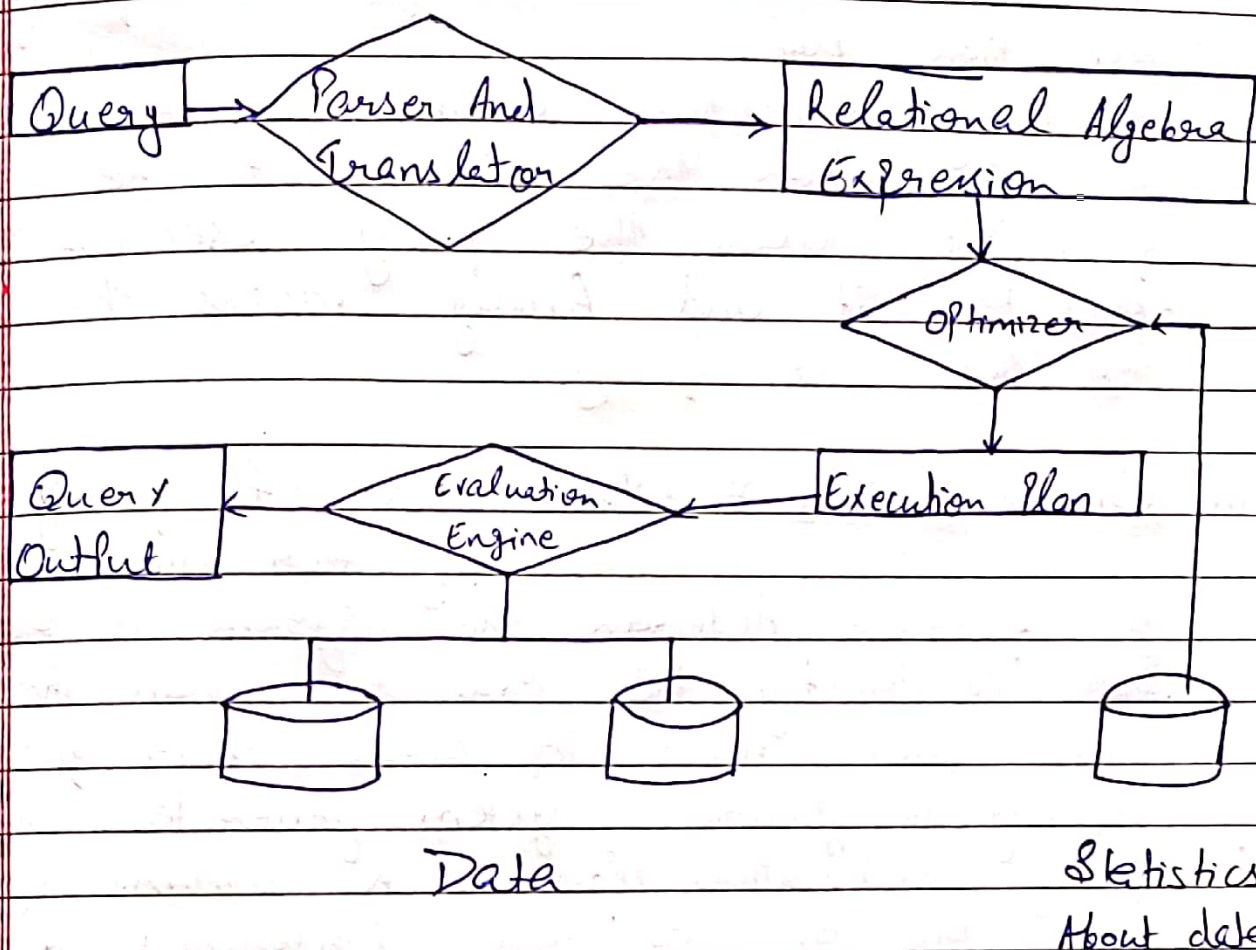 Query
Parser And
Translator
Relational Algebra
Expression
Optimizer
Query
Output
Evaluation
Engine
Execution Plan
Data
Statistics
About data